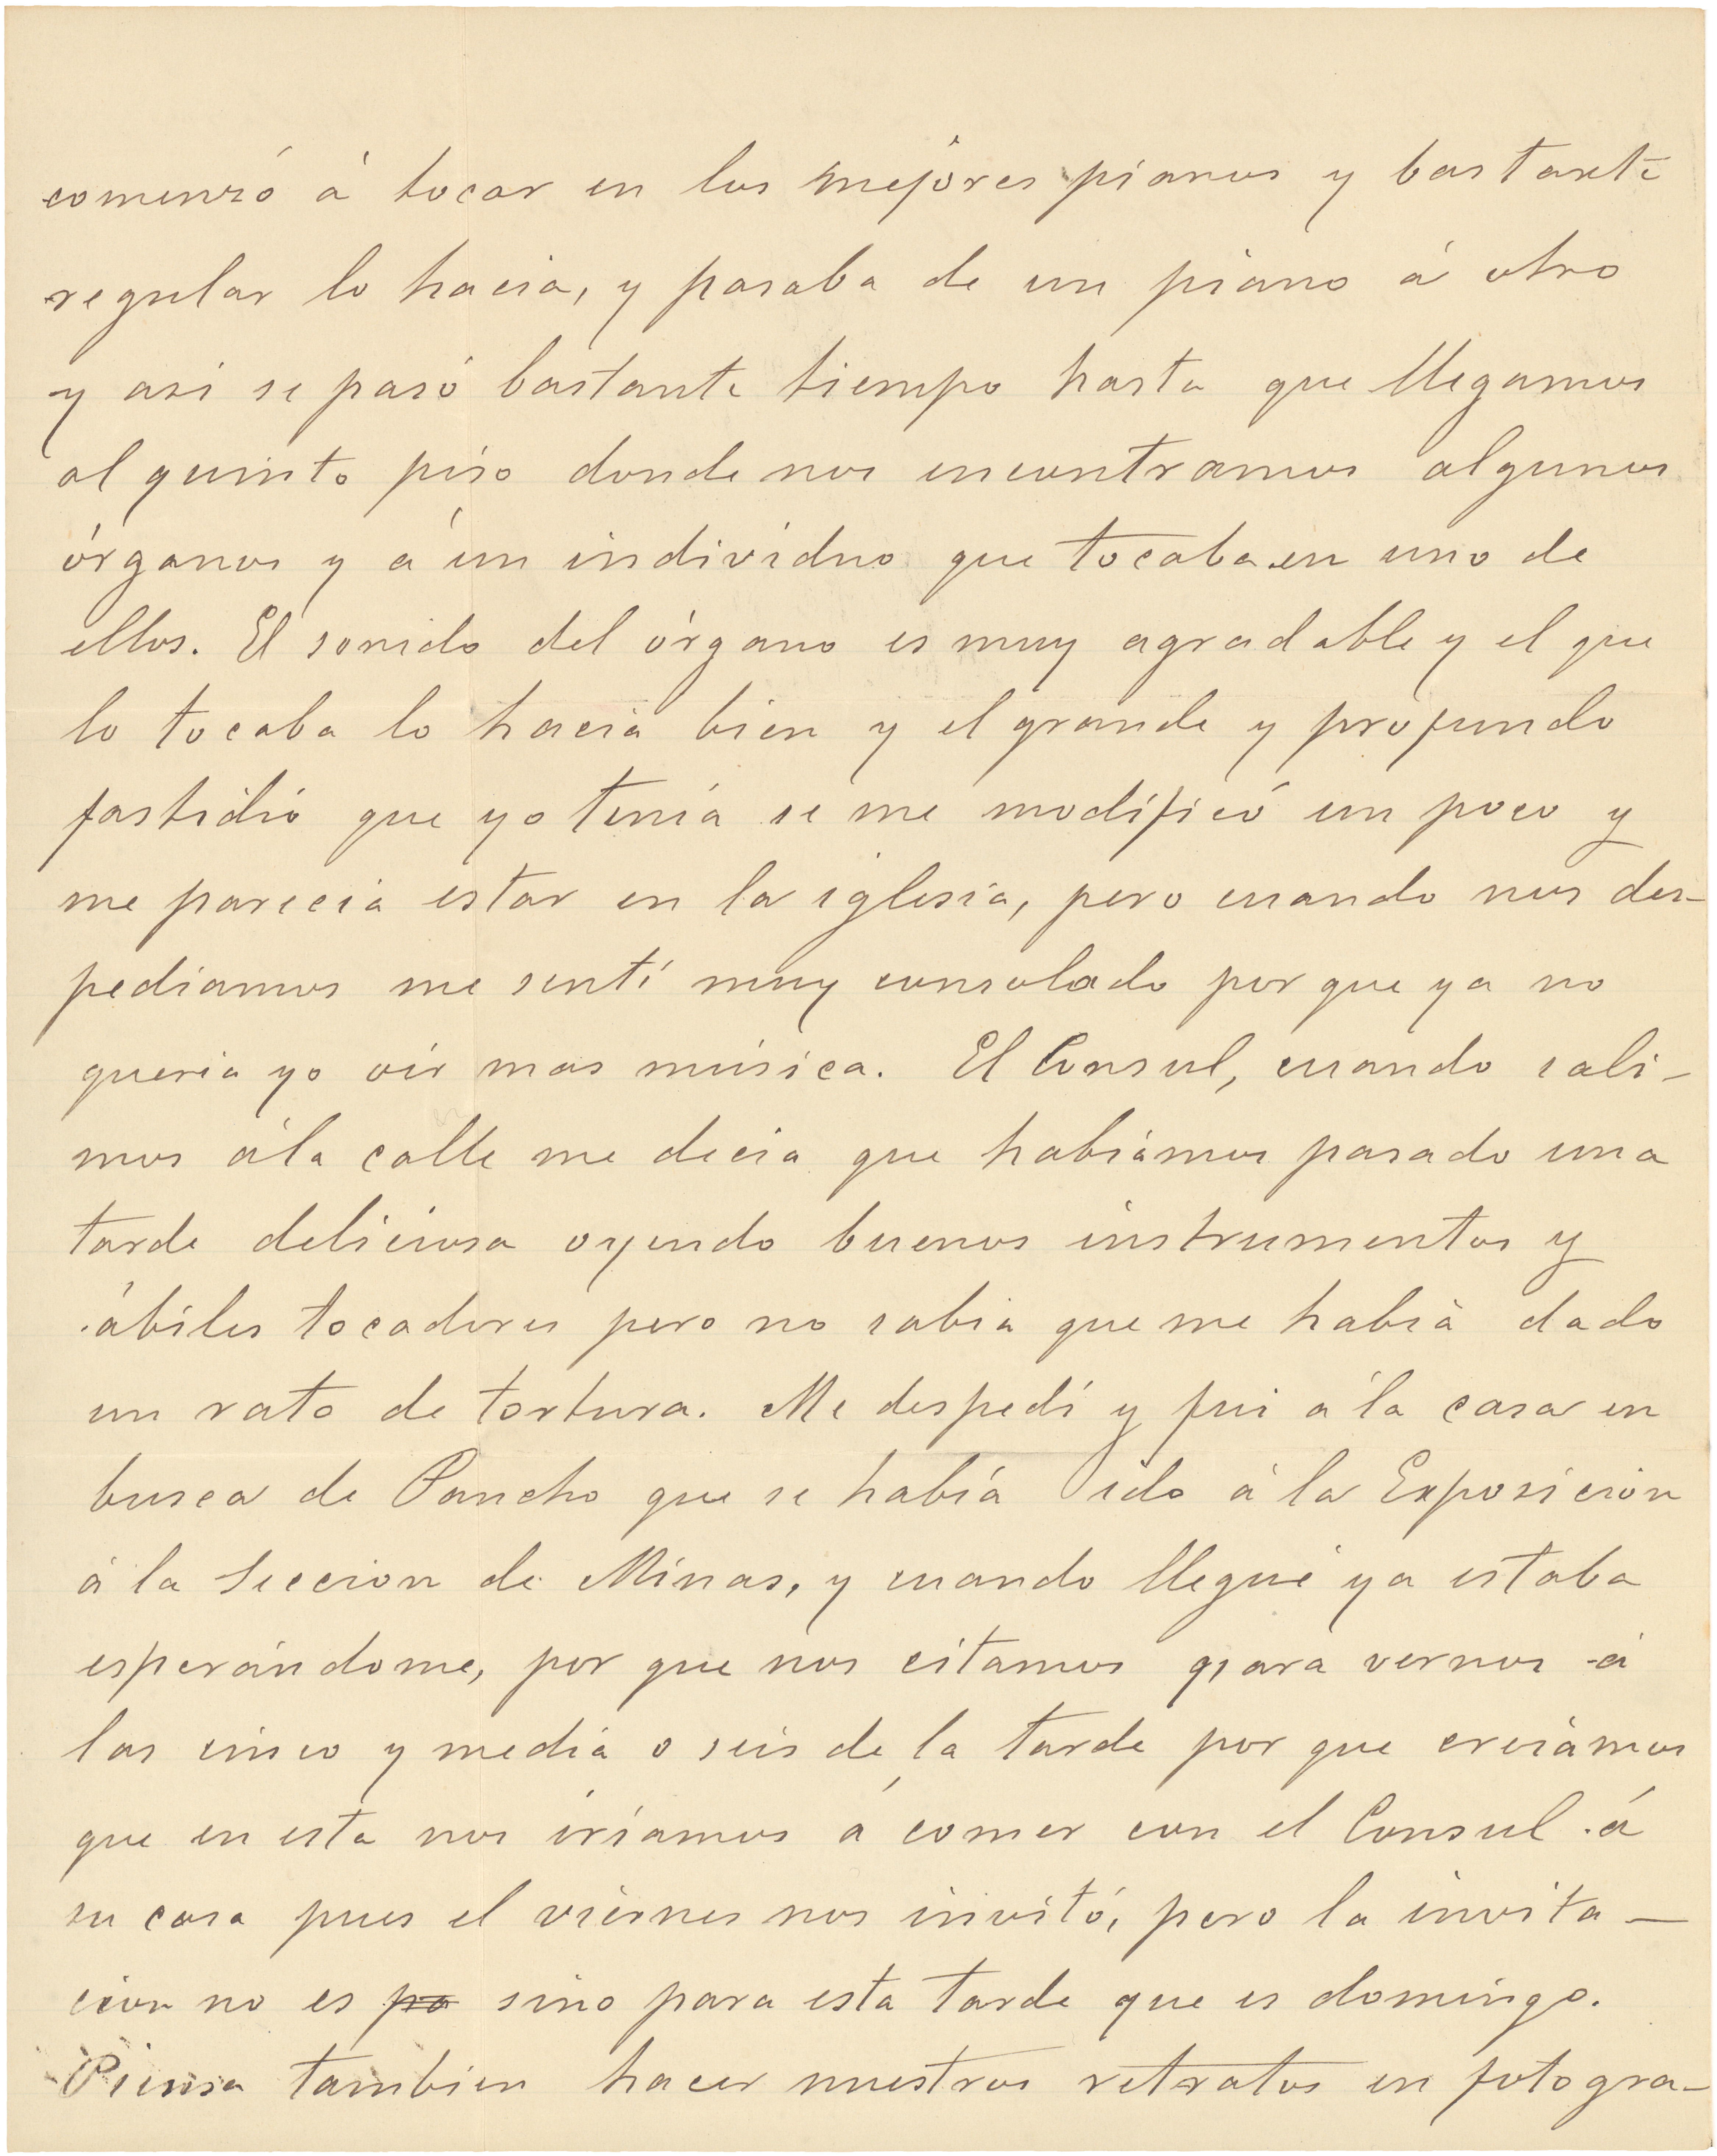 comenzó á tocar en los mejores pianos y bastante
regular lo hacia, y pasaba de un piano á otro
y asi se pasó bastante tiempo hasta que llegamos
al quinto piso donde nos encontramos algunos
órganos y á un individuo que tocaba en uno de
ellos. El sonido del órgano es muy agradable y el que
lo tocaba lo hacia bien y el grande y profundo
fastidio que yo tenia se me modificó un poco y
me parecia estar en la iglesia, pero cuando nos des-
pediamos me sentí muy consolado por que ya no
queria yo oir mas música. El Consul, cuando sali-
mos á la calle me decia que habiamos pasado una
tarde deliciosa oyendo buenos instrumentos y
ábiles tocadores pero no sabia que me habia dado
un rato de tortura. Me despedí y fui á la casa en
busca de Pancho que se había ido á la Exposicion
á la Seccion de Minas, y cuando llegué ya estaba
esperándome, por que nos citamos para vernos á
las cinco y media o seis de la tarde por que creiamos
que en esta nos iríamos á comer con el Consul á
su casa pues el viernes nos invitó, pero la invita-
cion no es pa sino para esta tarde que es domingo.
Piensa tambien hacer nuestros retratos en fotogra-